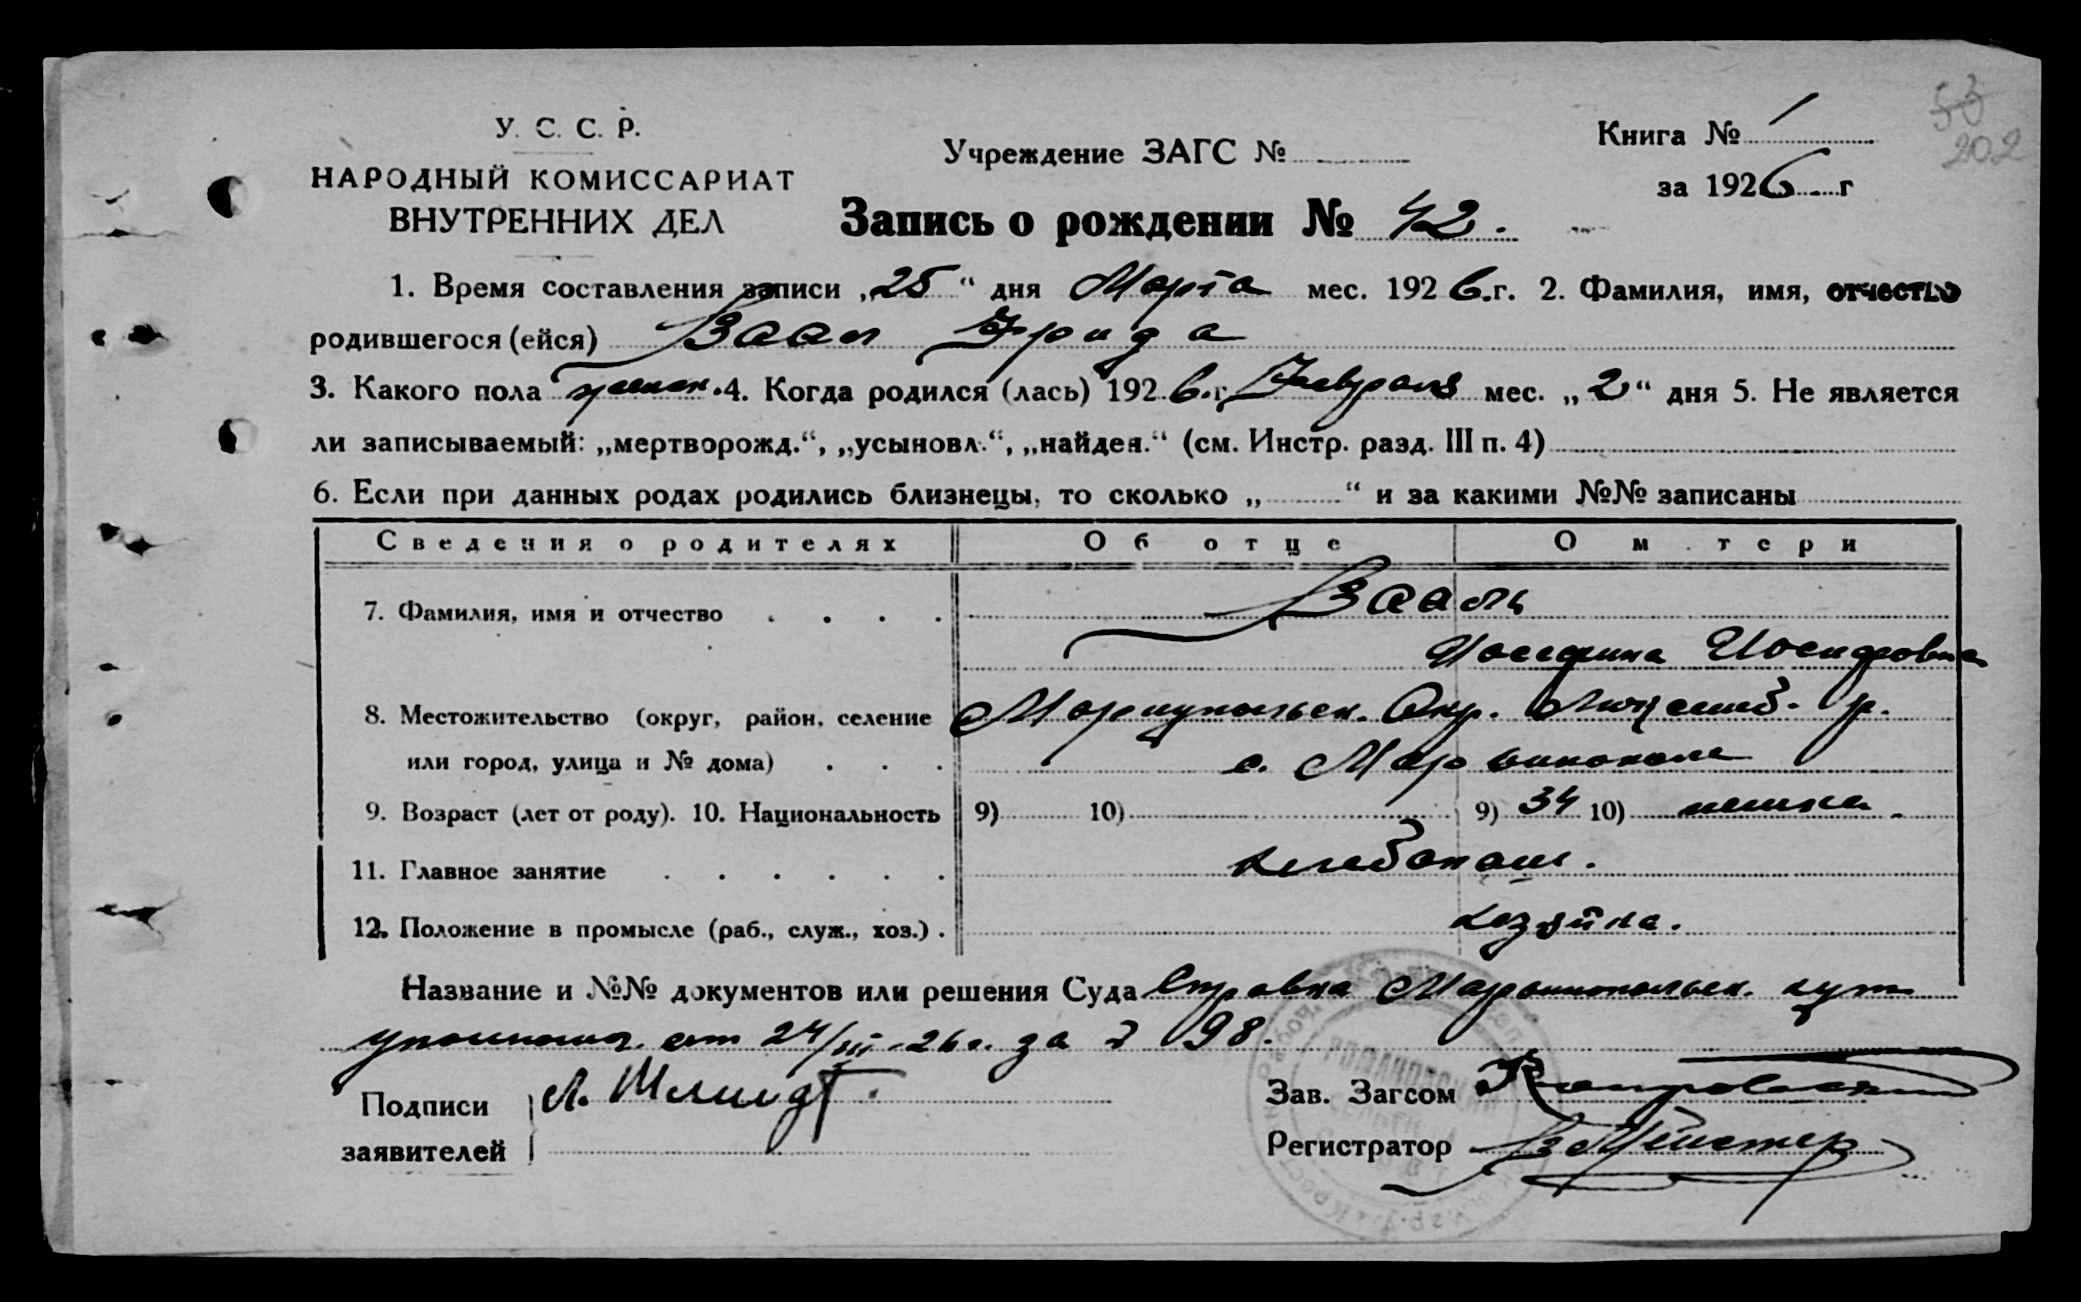 53
202
У. С. С. Р.
НАРОДНЫЙ КОМИССАРИАТ
ВНУТРЕННИХ ДЕЛ
Учреждение ЗАГС №
Книга № 1
за 1926 г
Запись о рождении № 42.
1. Время составления записи „25“ дня Марта мес. 1926.г. 2. Фамилия, имя, отчество
родившегося (ейся) Вааль Фрида
3. Какого пола женск. 4. Когда родился (лась) 1926.г. Февраля мес. „2“ дня 5. Не является
ли записываемый: „мертворожд.“, „усыновл.“, „найден.“ (см. Инстр. разд. III п. 4)
6. Если при данных родах родились близнецы, то сколько „ “ и за какими №№ записаны
Сведения о родителях Об отце О м тери
7. Фамилия, имя и отчество Вааль
Иосефина Иосифовна
8. Местожительство (округ, район, селение Мариупольск. Окр. р.
или город, улица и № дома) с. Марьинополе
9. Возраст (лет от роду). 10. Национальность 9) 10) 9) 34 10) немка.
11. Главное занятие хлебопаш.
12. Положение в промысле (раб., служ., хоз.) хозяйка.
Название и №№ документов или решения Суда Справка Марьинопольск.
уполномоч. от 24/III-26 г. за № 98.
Подписи Л. Шмидт Зав. Загсом
заявителей Регистратор Мейстер